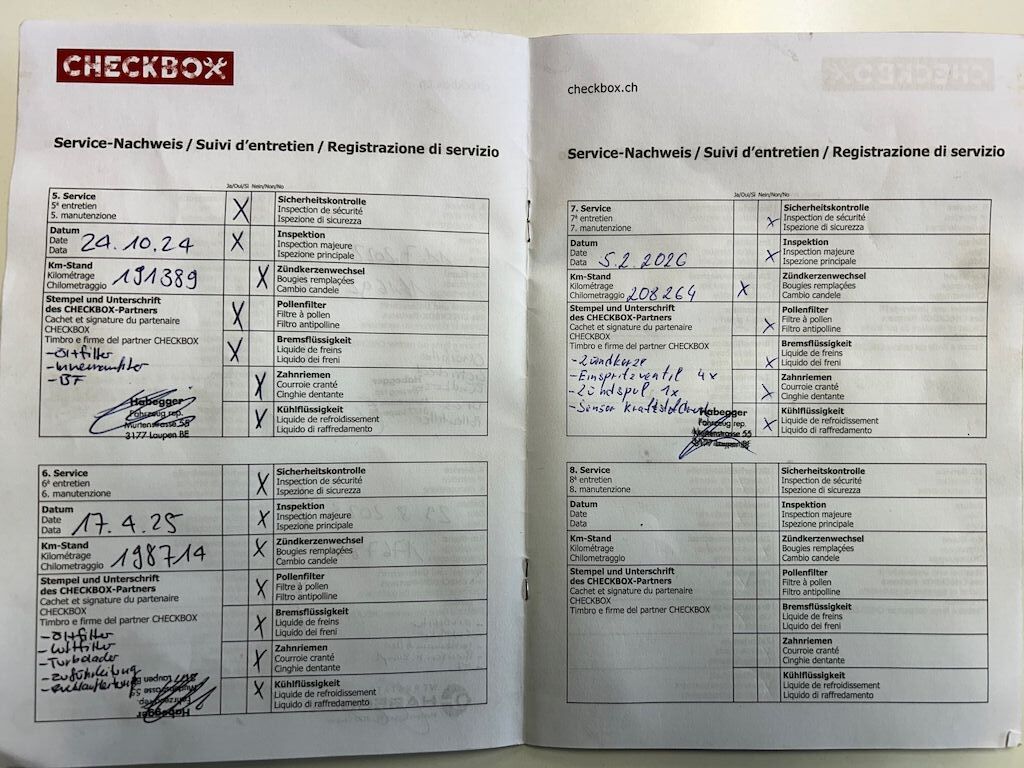 CHECKBOX
Service-Nachweis / Suivi d'entretien / Registrazione di servizio
Ja/Oui/Sì Nein/Non/No
5. Service
5e entretien
5. manutenzione
X
Sicherheitskontrolle
Inspection de sécurité
Ispezione di sicurezza
Datum
Date
Data
24.10.24
X
Inspektion
Inspection majeure
Ispezione principale
Km-Stand
Kilométrage
Chilometraggio
191389
X
Zündkerzenwechsel
Bougies remplacées
Cambio candele
Stempel und Unterschrift
des CHECKBOX-Partners
Cachet et signature du partenaire
CHECKBOX
Timbro e firme del partner CHECKBOX
- Öl+filter
- Innenraumfilter
- BF
Habegger
Fahrzeug rep.
Murtenstrasse 55
3177 Laupen BE
X
Pollenfilter
Filtre à pollen
Filtro antipolline
X
Bremsflüssigkeit
Liquide de freins
Liquido dei freni
X
Zahnriemen
Courroie cranté
Cinghie dentante
X
Kühlflüssigkeit
Liquide de refroidissement
Liquido di raffredamento
6. Service
6e entretien
6. manutenzione
X
Sicherheitskontrolle
Inspection de sécurité
Ispezione di sicurezza
Datum
Date
Data
17.4.25
X
Inspektion
Inspection majeure
Ispezione principale
Km-Stand
Kilométrage
Chilometraggio
198714
X
Zündkerzenwechsel
Bougies remplacées
Cambio candele
Stempel und Unterschrift
des CHECKBOX-Partners
Cachet et signature du partenaire
CHECKBOX
Timbro e firme del partner CHECKBOX
- Öl+filter
- Luftfilter
- Turbolader
- Zuführleitung
- Rücklaufleitung
Habegger
Fahrzeug rep.
Murtenstrasse 55
3177 Laupen BE
X
Pollenfilter
Filtre à pollen
Filtro antipolline
X
Bremsflüssigkeit
Liquide de freins
Liquido dei freni
X
Zahnriemen
Courroie cranté
Cinghie dentante
X
Kühlflüssigkeit
Liquide de refroidissement
Liquido di raffredamento
checkbox.ch
Service-Nachweis / Suivi d'entretien / Registrazione di servizio
Ja/Oui/Sì Nein/Non/No
7. Service
7e entretien
7. manutenzione
X
Sicherheitskontrolle
Inspection de sécurité
Ispezione di sicurezza
Datum
Date
Data
5.2.2026
X
Inspektion
Inspection majeure
Ispezione principale
Km-Stand
Kilométrage
Chilometraggio
208264
X
Zündkerzenwechsel
Bougies remplacées
Cambio candele
Stempel und Unterschrift
des CHECKBOX-Partners
Cachet et signature du partenaire
CHECKBOX
Timbro e firme del partner CHECKBOX
- Zündkerze
- Einspritzventil 4x
- Zündspul 1x
- Sensor
Habegger
Fahrzeug rep.
Murtenstrasse 55
3177 Laupen BE
X
Pollenfilter
Filtre à pollen
Filtro antipolline
X
Bremsflüssigkeit
Liquide de freins
Liquido dei freni
X
Zahnriemen
Courroie cranté
Cinghie dentante
X
Kühlflüssigkeit
Liquide de refroidissement
Liquido di raffredamento
8. Service
8e entretien
8. manutenzione
Sicherheitskontrolle
Inspection de sécurité
Ispezione di sicurezza
Datum
Date
Data
Inspektion
Inspection majeure
Ispezione principale
Km-Stand
Kilométrage
Chilometraggio
Zündkerzenwechsel
Bougies remplacées
Cambio candele
Stempel und Unterschrift
des CHECKBOX-Partners
Cachet et signature du partenaire
CHECKBOX
Timbro e firme del partner CHECKBOX
Pollenfilter
Filtre à pollen
Filtro antipolline
Bremsflüssigkeit
Liquide de freins
Liquido dei freni
Zahnriemen
Courroie cranté
Cinghie dentante
Kühlflüssigkeit
Liquide de refroidissement
Liquido di raffredamento